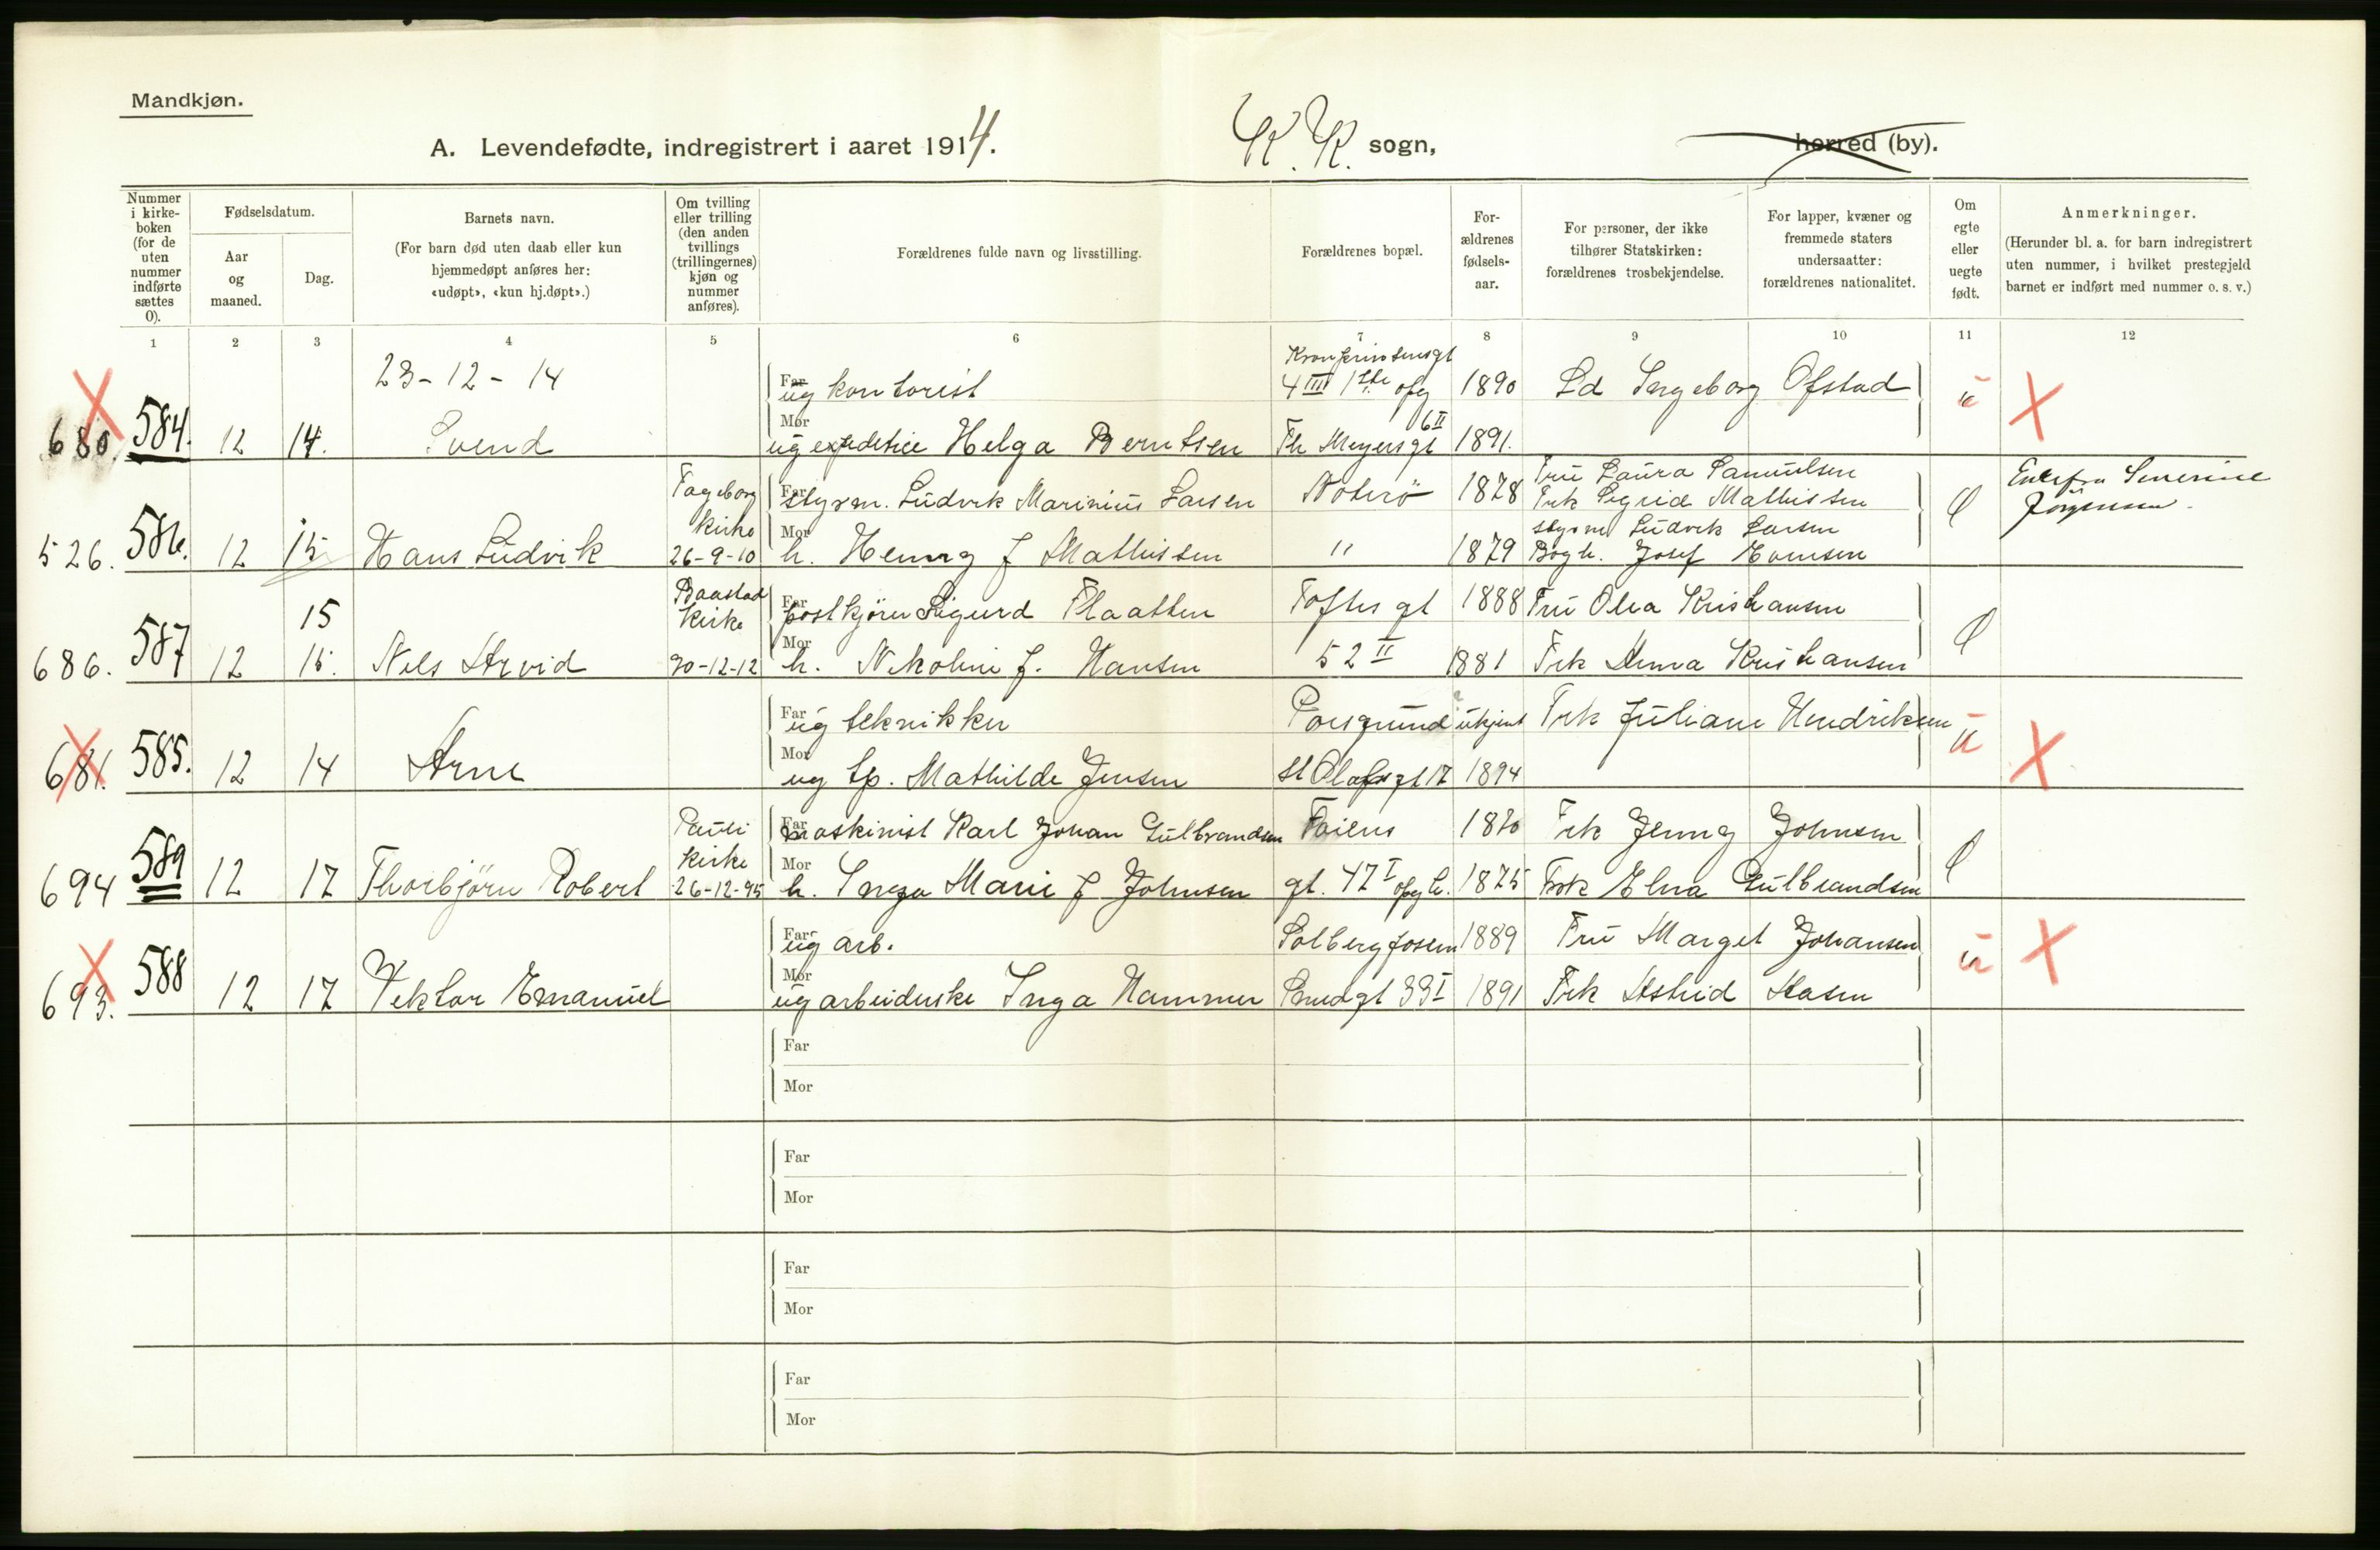 Mandkjøn.
A. Levendefødte, indregistrert i aaret 1914.
K. K. sogn,
herred (by).
Nummer i kirke-boken (for de uten nummer indførte sættes 0).
Fødselsdatum.
Aar og maaned.
Dag.
Barnets navn.
(For barn død uten daab eller kun hjemmedøpt anføres her: «udøpt», «kun hj.døpt».)
Om tvilling eller trilling (den anden tvillings (trillingernes) kjøn og nummer anføres).
Forældrenes fulde navn og livsstilling.
Forældrenes bopæl.
For-ældrenes fødsels-aar.
For personer, der ikke tilhører Statskirken: forældrenes trosbekjendelse.
For lapper, kvæner og fremmede staters undersaatter: forældrenes nationalitet.
Om egte eller uegte født.
Anmerkninger.
(Herunder bl. a. for barn indregistrert uten nummer, i hvilket prestegjeld barnet er indført med nummer o. s. v.)
1 2 3 4 5 6 7 8 9 10 11 12
23-12-14
Far ug kontorist 4 III 1ste opg 1890 Ingeborg Ofstad u X
680. 584. 12 14. Svend Mor ug Helga Berntsen Th Meyersgt 6 II 1891.
Fageborg Kirke 26-9-10
Far styrm. Ludvik Marinius Larsen Nøterö 1878 Fru Laura Samuelsen
Frk Sigrid Mathissen
Jørgensen
526. 586. 12 15 Hans Ludvik Mor h. Henny f Mathissen " 1879 styrm Ludvik Larsen
Josef
Kirke 20-12-12
15 Far postkjører Sigurd Flaatten Toftes gt 1888 Fru Olea Kristiansen
686. 587 12 15. Nils Arvid Mor h. Nikoline f. Hansen 52 II 1881 Frk Anna Kristiansen
Far ug tekniker Porsgrund ukjent Frk Juliane Hendriksen u X
681. 585. 12 14 Arne Mor ug tp. Mathilde Jensen St Olafsgt 17 1894
Pauli Kirke 26-12-95
Far maskinist Karl Johan Gulbrandsen 1870 Frk Jenny Johnsen
694 589 12 17 Thorbjørn Robert Mor h. Inga Marie f Johnsen gt. 47 I opg h. 1875 Frk Elna Gulbrandsen
Far ug arb. 1889 Fru Marget Johansen u X
693. 588 12 17 Viktor Emanuel Mor ug arbeiderske Inga Hammer 33 I 1891 Frk Astrid
Far
Mor
Far
Mor
Far
Mor
Far
Mor